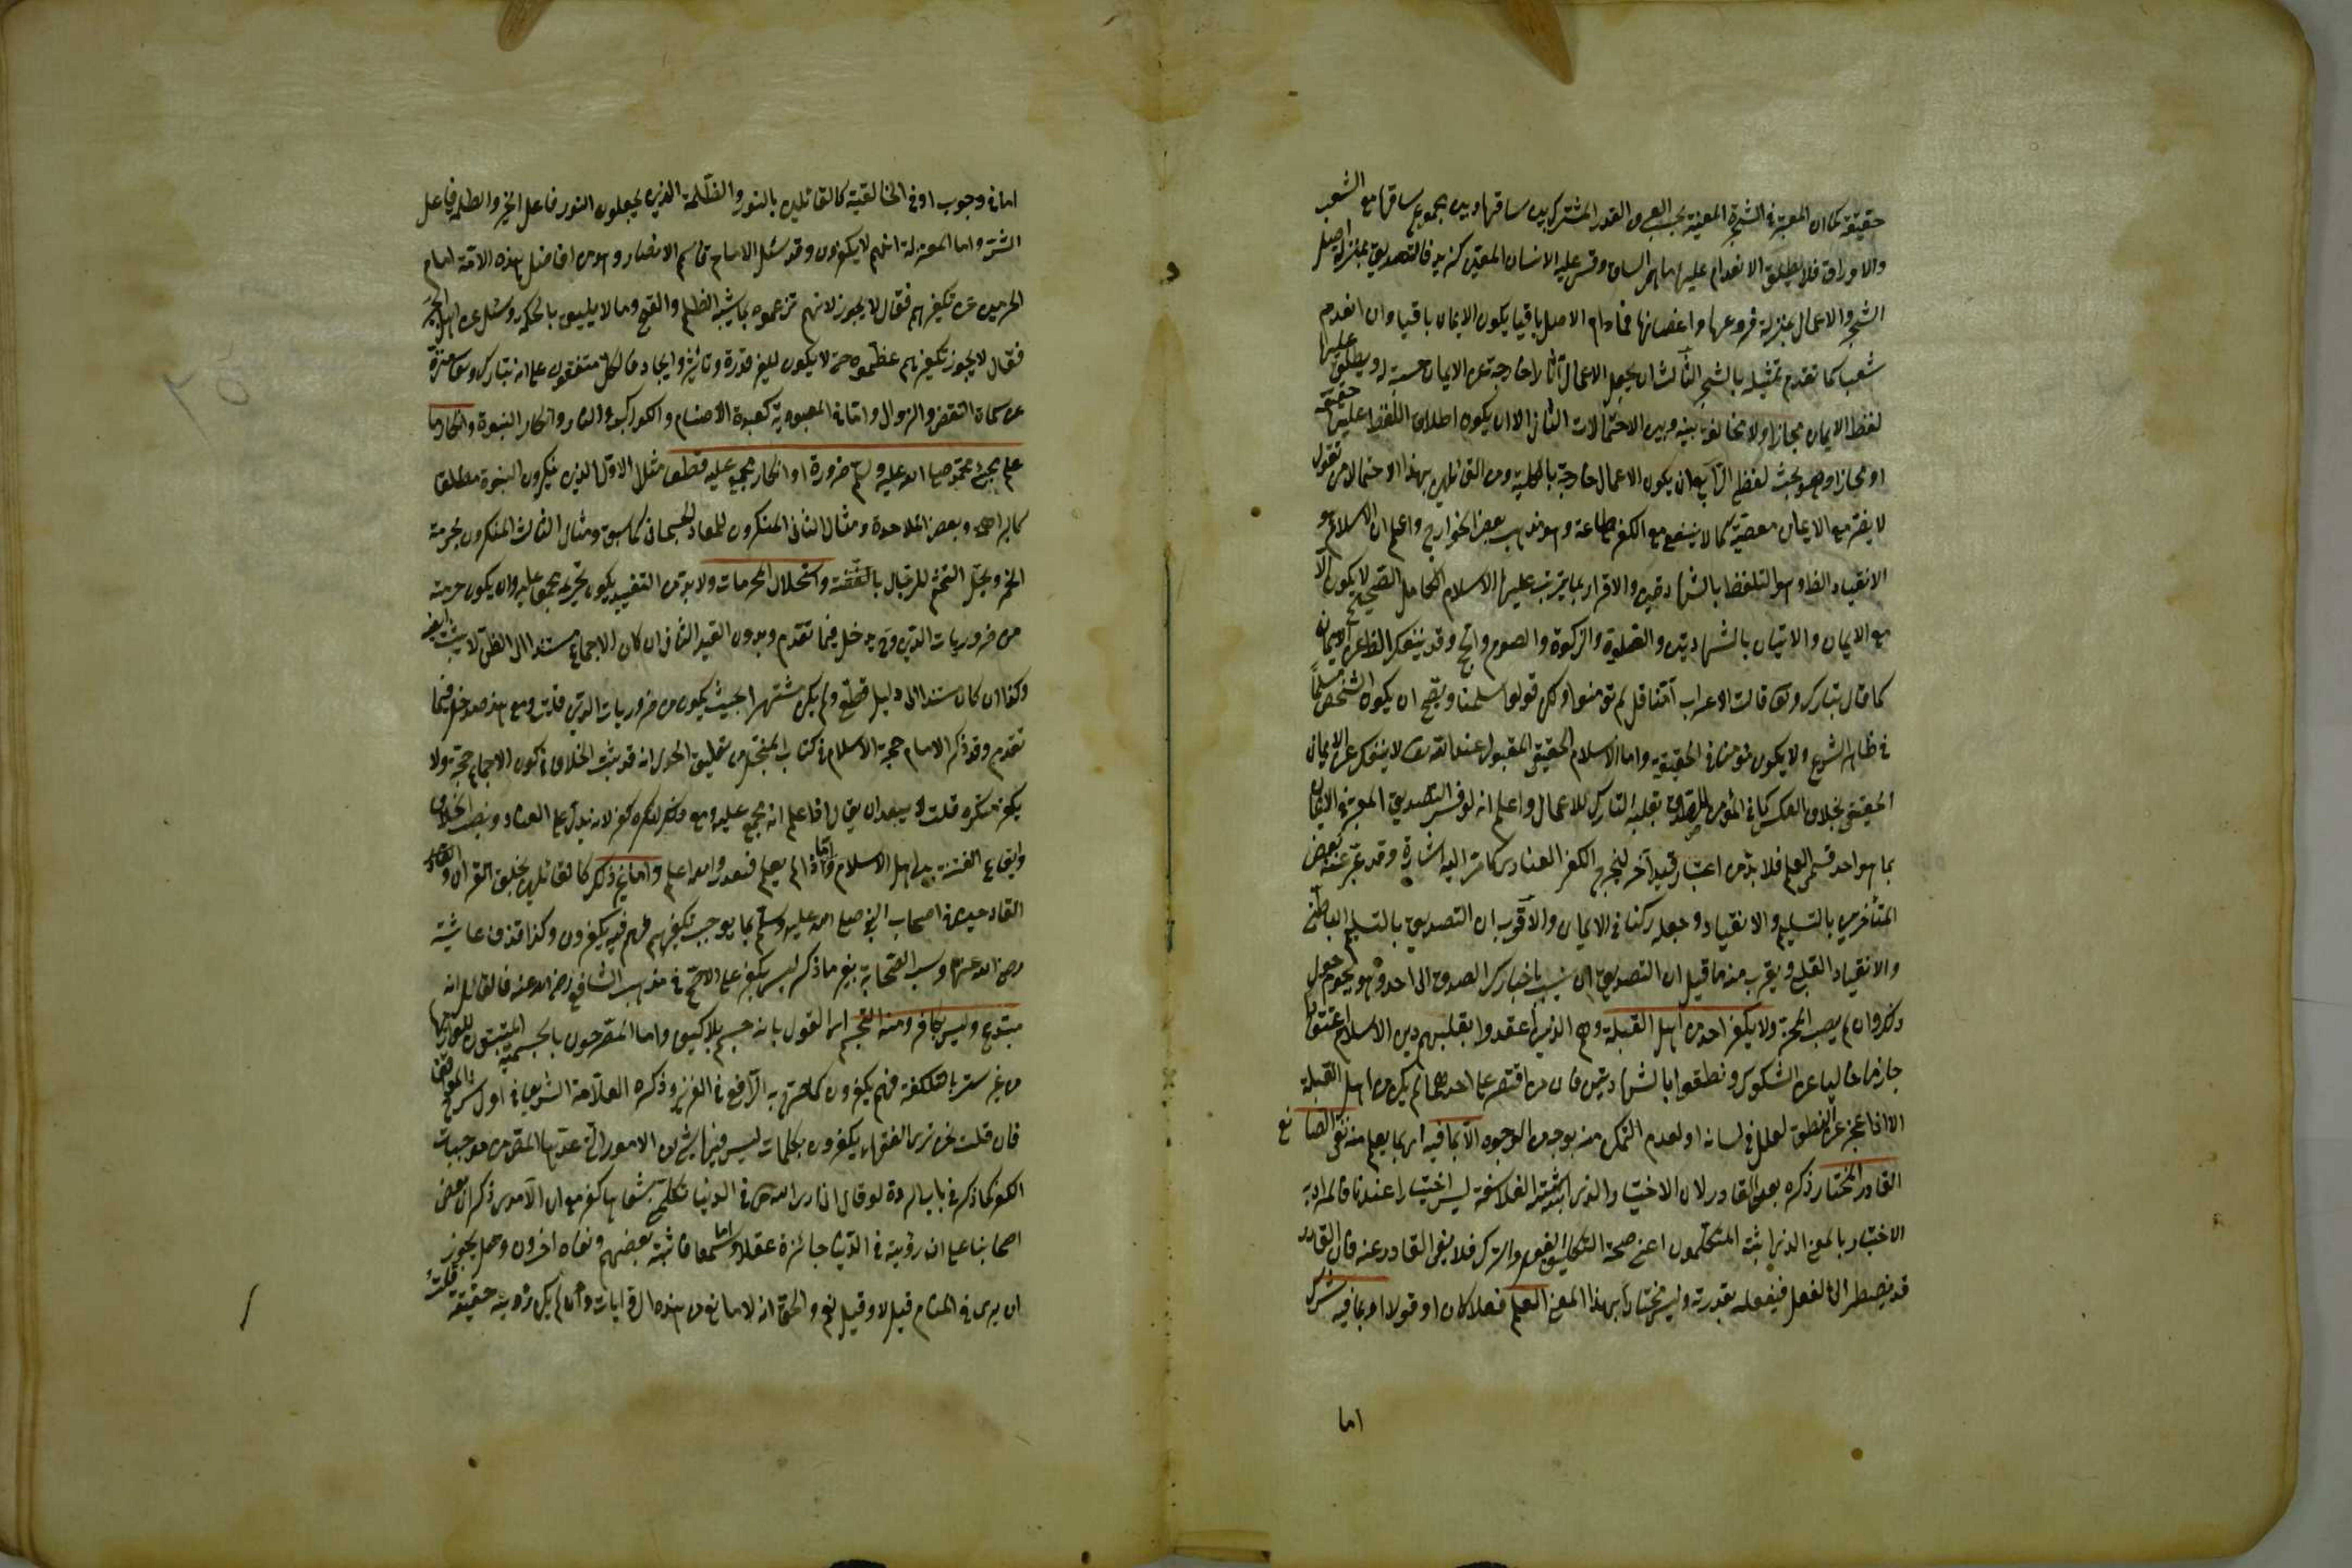 حقيقة كما ان المعتبر في الشجرة المعينة بحسب العرف القدر المشترك بين ساقها وبين مجموع ساقها مع الشعب
والاوراق فلا يطلق الانعدام عليها ما بقي الساق وقس عليه الانسان المعين كزيد فالتصديق بمنزلة اصل
الشجر والاعمال بمنزلة فروعها واغصانها فما دام الاصل باقيا يكون الايمان باقيا وان انعدم
شعبها كما تقدم تمثيله بالشجر الثالث ان يجعل الاعمال آثارا خارجة عن الايمان مسببة له ويطلق عليها
لفظ الايمان مجازا ولا مخالفة بينه وبين الاحتمالات الثاني الا ان يكون اطلاق اللفظ عليها حقيقة
او مجازا وهو بحث لفظي الرابع ان يكون الاعمال خارجة بالكلية ومن القائلين بهذا الاحتمال من يقول
لا يضر مع الايمان معصية كما لا ينفع مع الكفر طاعة وهو مذهب بعض الخوارج واعلم ان الاسلام هو
الانقياد الظاهر وهو التلفظ بالشهادتين والاقرار بما يترتب عليها والاسلام الكامل الصحيح لا يكون الا
مع الايمان والاتيان بالشهادتين والصلوة والزكوة والصوم والحج وقد ينفك الظاهر عن الايمان
كما قال تبارك وتعالى قالت الاعراب آمنا قل لم تؤمنوا ولكن قولوا اسلمنا ويصح ان يكون الشخص مسلما
في ظاهر الشرع ولا يكون مؤمنا في الحقيقة واما الاسلام الحقيقي المقبول عند الله تعالى لا ينفك عن الايمان
الحقيقي بخلاف العكس كما في المؤمن المصدق بقلبه التارك للاعمال واعلم انه لو فسر التصديق المعتبر في الايمان
بما هو احد قسمي العلم فلا بد من اعتبار قيد آخر ليخرج الكفر العنادي كما مر اليه اشارة وقد عبر عنه بعض
المتأخرين بالتسليم والانقياد وجعله ركنا في الايمان والاقرب ان التصديق بالتسليم الباطني
والانقياد القلبي ويقرب منه ما قيل ان التصديق ان ينسب باختيارك الصدق الى احد وهو يحوم حول
ذلك وان لم يصب المحز ولا يكفر احد من اهل القبلة وهم الذين اعتقدوا بقلبهم دين الاسلام اعتقادا
جازما خاليا عن الشكوك ونطقوا بالشهادتين فان من اقتصر على احدهما لم يكن من اهل القبلة
الا اذا عجز عن النطق لعلل في لسانه او لعدم التمكن منه بوجه من الوجوه الا بما فيه اي بما يعلم منه نفي الصانع
القادر المختار ذكره بعد القادر لان الاختيار الذي اثبته الفلاسفة ليس اختيارا عندنا فالمراد به
الاختيار بالمعنى الذي اثبته المتكلمون اعني صحة الفعل والترك فلا ينفي القادر عنه فان القادر
قد يضطر الى الفعل فيفعله بقدرته وليس مختارا بهذا المعنى العليم فعلا كان او قولا او بما فيه شرك
اما
اما في وجوب او في الخالقية كالقائلين بالنور والظلمة الذين يجعلون النور فاعل الخير والظلمة فاعل
الشر واما المعتزلة انهم لا يكفرون وقد سئل الامام قاسم الانصار وهو من افاضل هذه الامة امام
الحرمين عن تكفيرهم فقال لا يجوز لانهم نزهوه بما يشبه الظلم والقبح وما لا يليق بالحكمة وسئل عن اهل الجبر
فقال لا يجوز تكفيرهم عظموه حتى لا يكون لغيره قدرة وتاثير وايجاد فالكل متفقون على انه تبارك وتعالى منزه
عن سمات النقص والزوال واما في المعبودية كعبدة الاصنام والكواكب والنار وانكار النبوة وانكار ما
علم مجيء محمد صلى الله عليه وسلم ضرورة او انكار مجمع عليه قطعا مثل الاول الذين ينكرون النبوة مطلقا
كالبراهمة وبعض الملاحدة ومثال الثاني المنكرون للمعاد الجسماني كما سبق ومثال الثالث المنكرون لحرمة
الخمر وبحل التختم للرجال بالفضة واستحلال المحرمات ولا بد من التقييد بكون تحريمه مجمعا عليه وان يكون حرمته
من ضروريات الدين وح يدخل فيما تقدم وبدون القيد الثاني ان كان الاجماع مستندا الى الظن لا يثبت الكفر
وكذا ان كان مستندا الى دليل قطعي ولم يكن مشتهرا بحيث يكون من ضروريات الدين قلت ومع هذا هو دخل فيما
تقدم وقد ذكر الامام حجة الاسلام في كتاب المنخول من تعليق الاصول انه قد يثبت الخلاف في كون الاجماع حجة ولا
يكفر منكره قلت لا يبعد ان يقال اذا علم انه مجمع عليه ومع ذلك انكره كفر لانه يدل على العناد ونصب الخلاف
وايقاع الفتنة بين اهل الاسلام واما اذا لم يعلم فنعذر والله اعلم واما غير ذلك كالقائلين بخلق القرآن والقدر
القادحين في اصحاب النبي صلى الله عليه وسلم بما يوجب تكفيرهم فهم فيه يكفرون وكذا قذف عائشة
رضي الله عنها وسب الصحابة بغير ما ذكر ليس بكفر على الاصح في مذهب الشافعي رضي الله عنه فالقائل انه
مبتدع وليس بكافر ومنه التجسم اي القول بانه جسم بلا كيف واما المصرحون بالجسمية المثبتون للوازمها
من غير ستر بالبلكفة فهم يكفرون كما صرح به الرافعي في العزيز وذكره العلامة الشريف في اول شرح المواقف
فان قلت نحن نرى الفقهاء يكفرون بكلمات ليس فيها شيء من الامور التي عدها المصر من موجبات
الكفر كما ذكر في باب الردة لو قال اني ارى الله تعالى في الدنيا يكلمني شفاها كفر مع ان الآمدي ذكر ان بعض
اصحابنا على ان رؤيته في الدنيا جائزة عقلا واما سمعا فاثبته بعضهم ونفاه آخرون وهل يجوز
ان يرى في المنام قيل لا وقيل نعم والحق انه لا مانع من هذه الرؤيات وان لم يكن رؤية حقيقة قلت